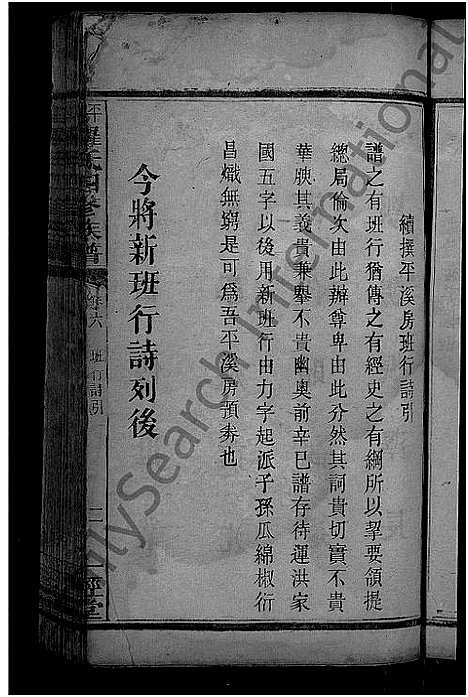 續撰平溪房班行詩引
譜之有班行猶傳之有經史之有綱所以挈要領提
總局倫次由此辦尊卑由此分然其詞貴切實不貴
華腴其義貴兼舉不貴幽奧前辛巳譜存待運洪家
國五字以後用新班行由力字起派子孫瓜綿椒衍
昌熾無窮是可為吾平溪房預券也
今將新班行詩列後
平 羅氏四修族譜 卷六 班行詩引 二 一經堂
FamilySearch International